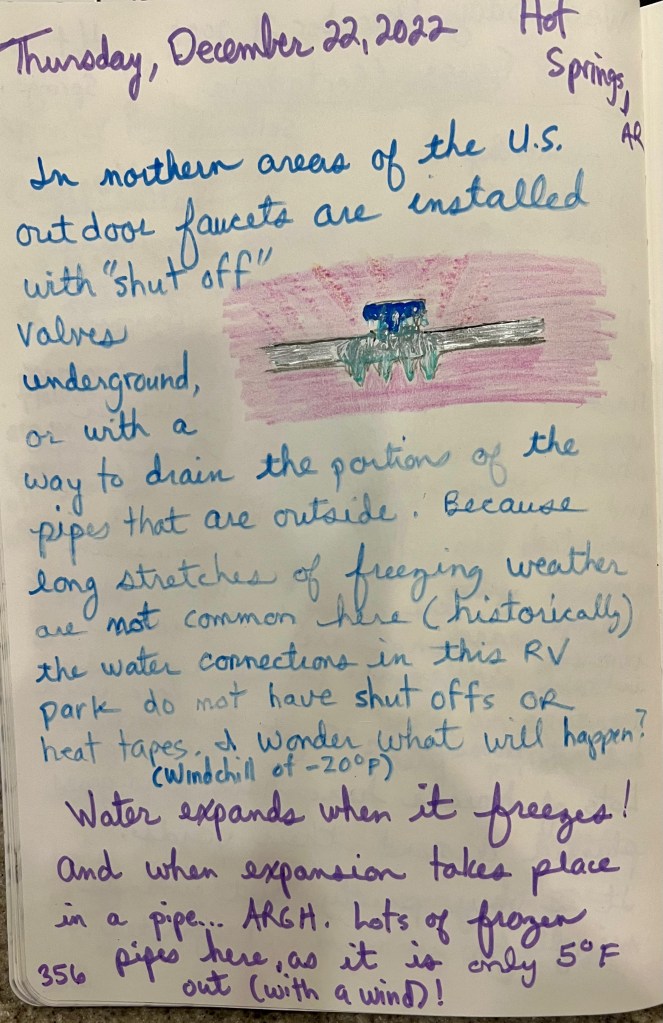 Thursday, December 22, 2022
Hot
Springs,
AR
In northern areas of the U.S.
outdoor faucets are installed
with "shut off"
valves
underground,
or with a
way to drain the portions of the
pipes that are outside. Because
long stretches of freezing weather
are not common here (historically)
the water connections in this RV
park do not have shut offs OR
heat tapes. I wonder what will happen?
(Windchill of -20°F)
Water expands when it freezes!
And when expansion takes place
in a pipe... ARGH. Lots of frozen
pipes here, as it is only 5°F
out (with a wind)!
356